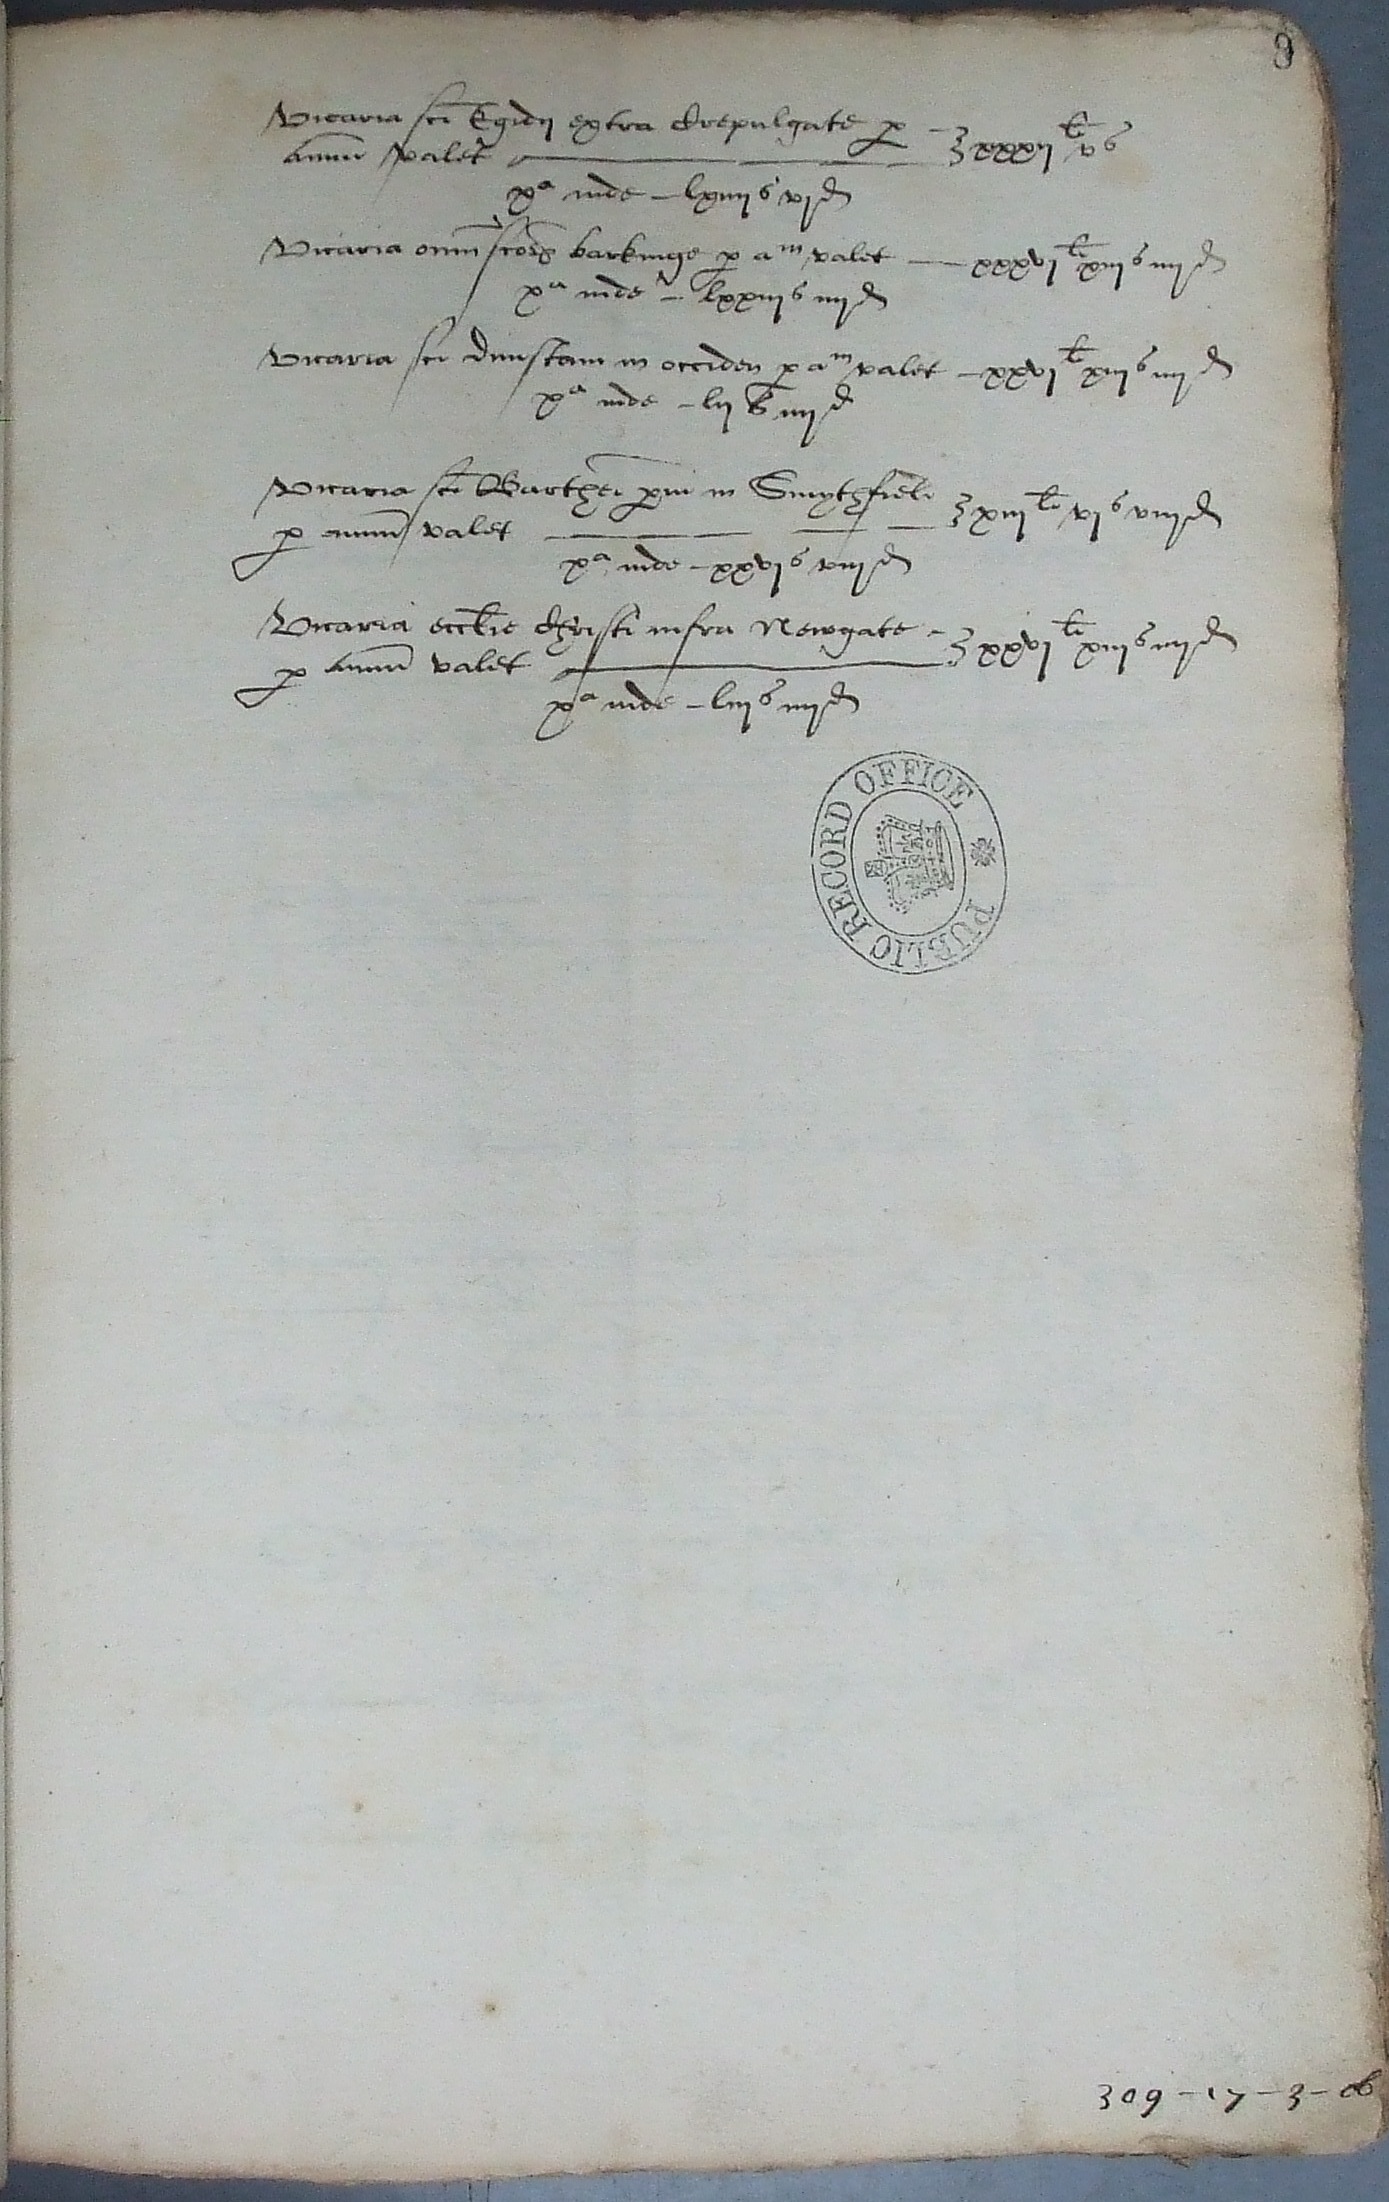 9
Vicaria sci Egidij extra Crepulgate p
Annu valet xxxij li v s
xa inde – lxiiij s vj d
Vicaria omi scoꝝ barkinge p a m valet — xxxvj li xiij s iiij d
xa inde – lxxiij s iiij d
Vicaria sci dunstani in occiden p a m valet – xxvj li xiij s iiij d
xa inde – lij s iiij d
Vicaria sci Barthei pui in Smythfield
p annu valet xiij li vj s viij d
xa inde – xxvj s viij d
Vicaria ecclie Christi infra Newgate –
p Annu valet xxvj li xiij s iiij d
xa inde – liij s iiij d
PUBLIC RECORD OFFICE
309–17–3–ob